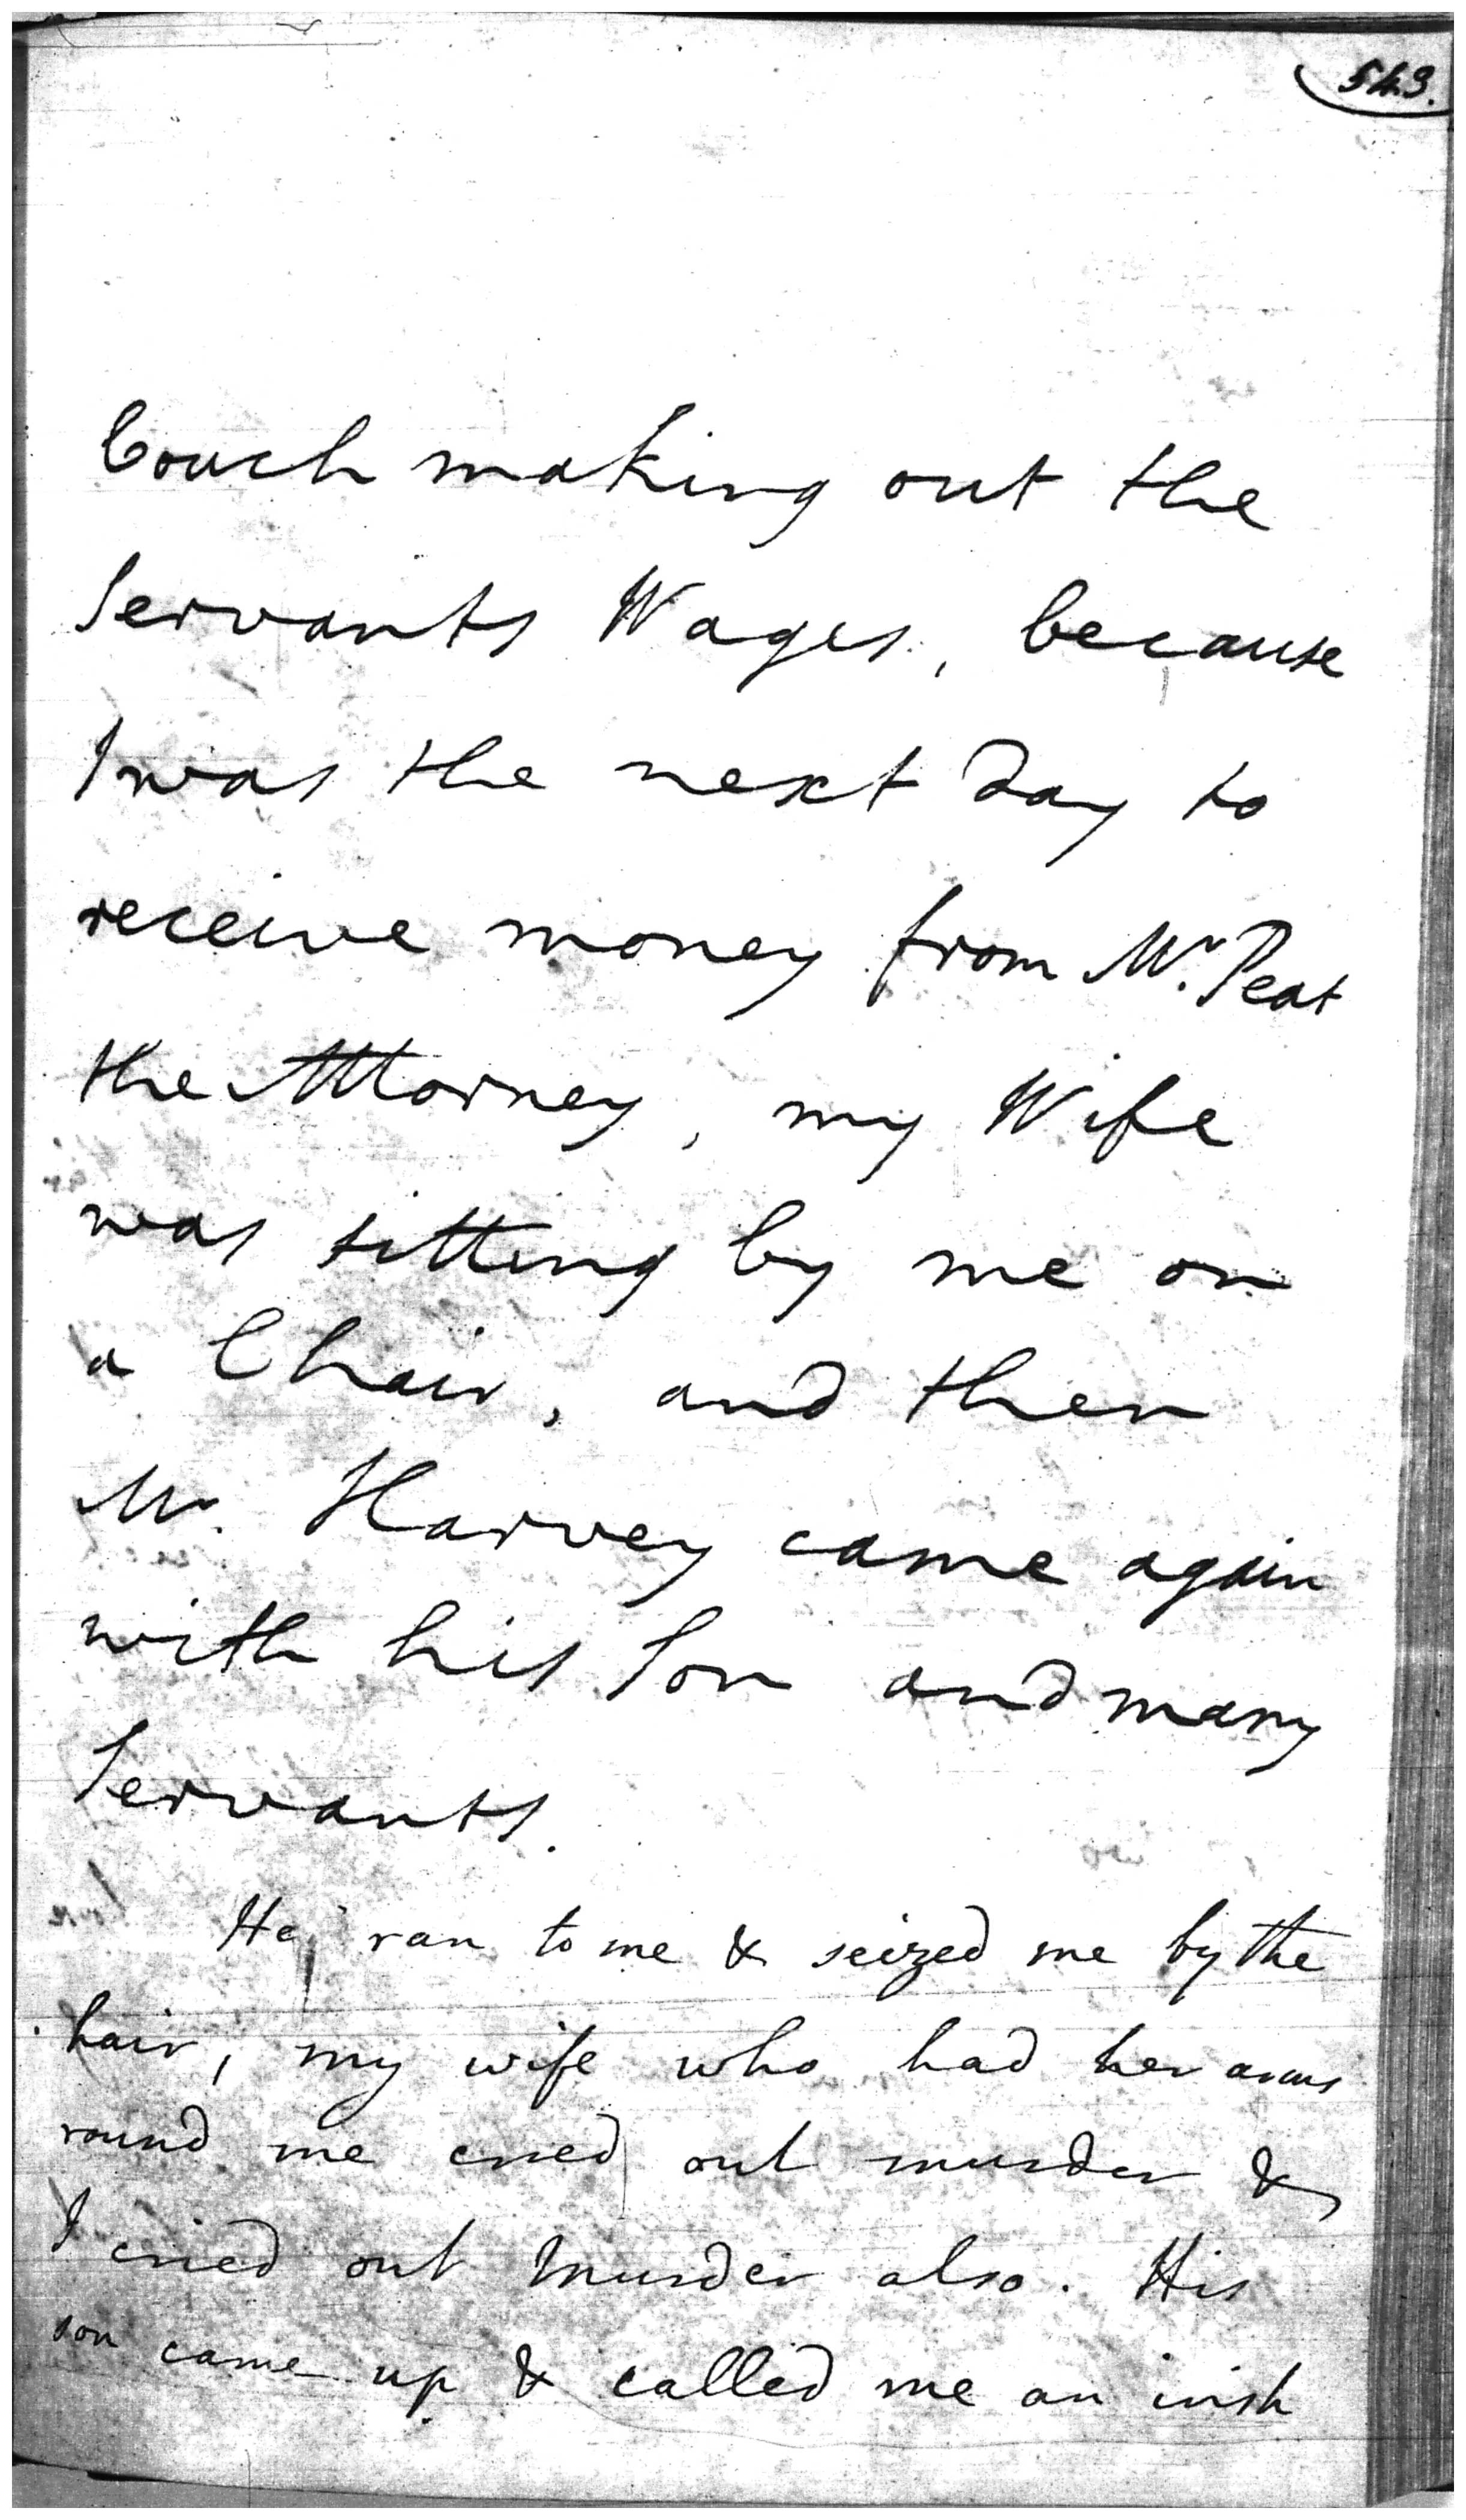 543.
Couch making out the
Servants Wages, because
I was the next day to
receive money from Mr. Peat
the Attorney, my Wife
was sitting by me on
a Chair, and then
Mr. Harvey came again
with his Son and many
Servants.
He ran to me & seized me by the
hair, my wife who had her arms
round me cried out murder &
I cried out Murder also. His
son came up & called me an irish